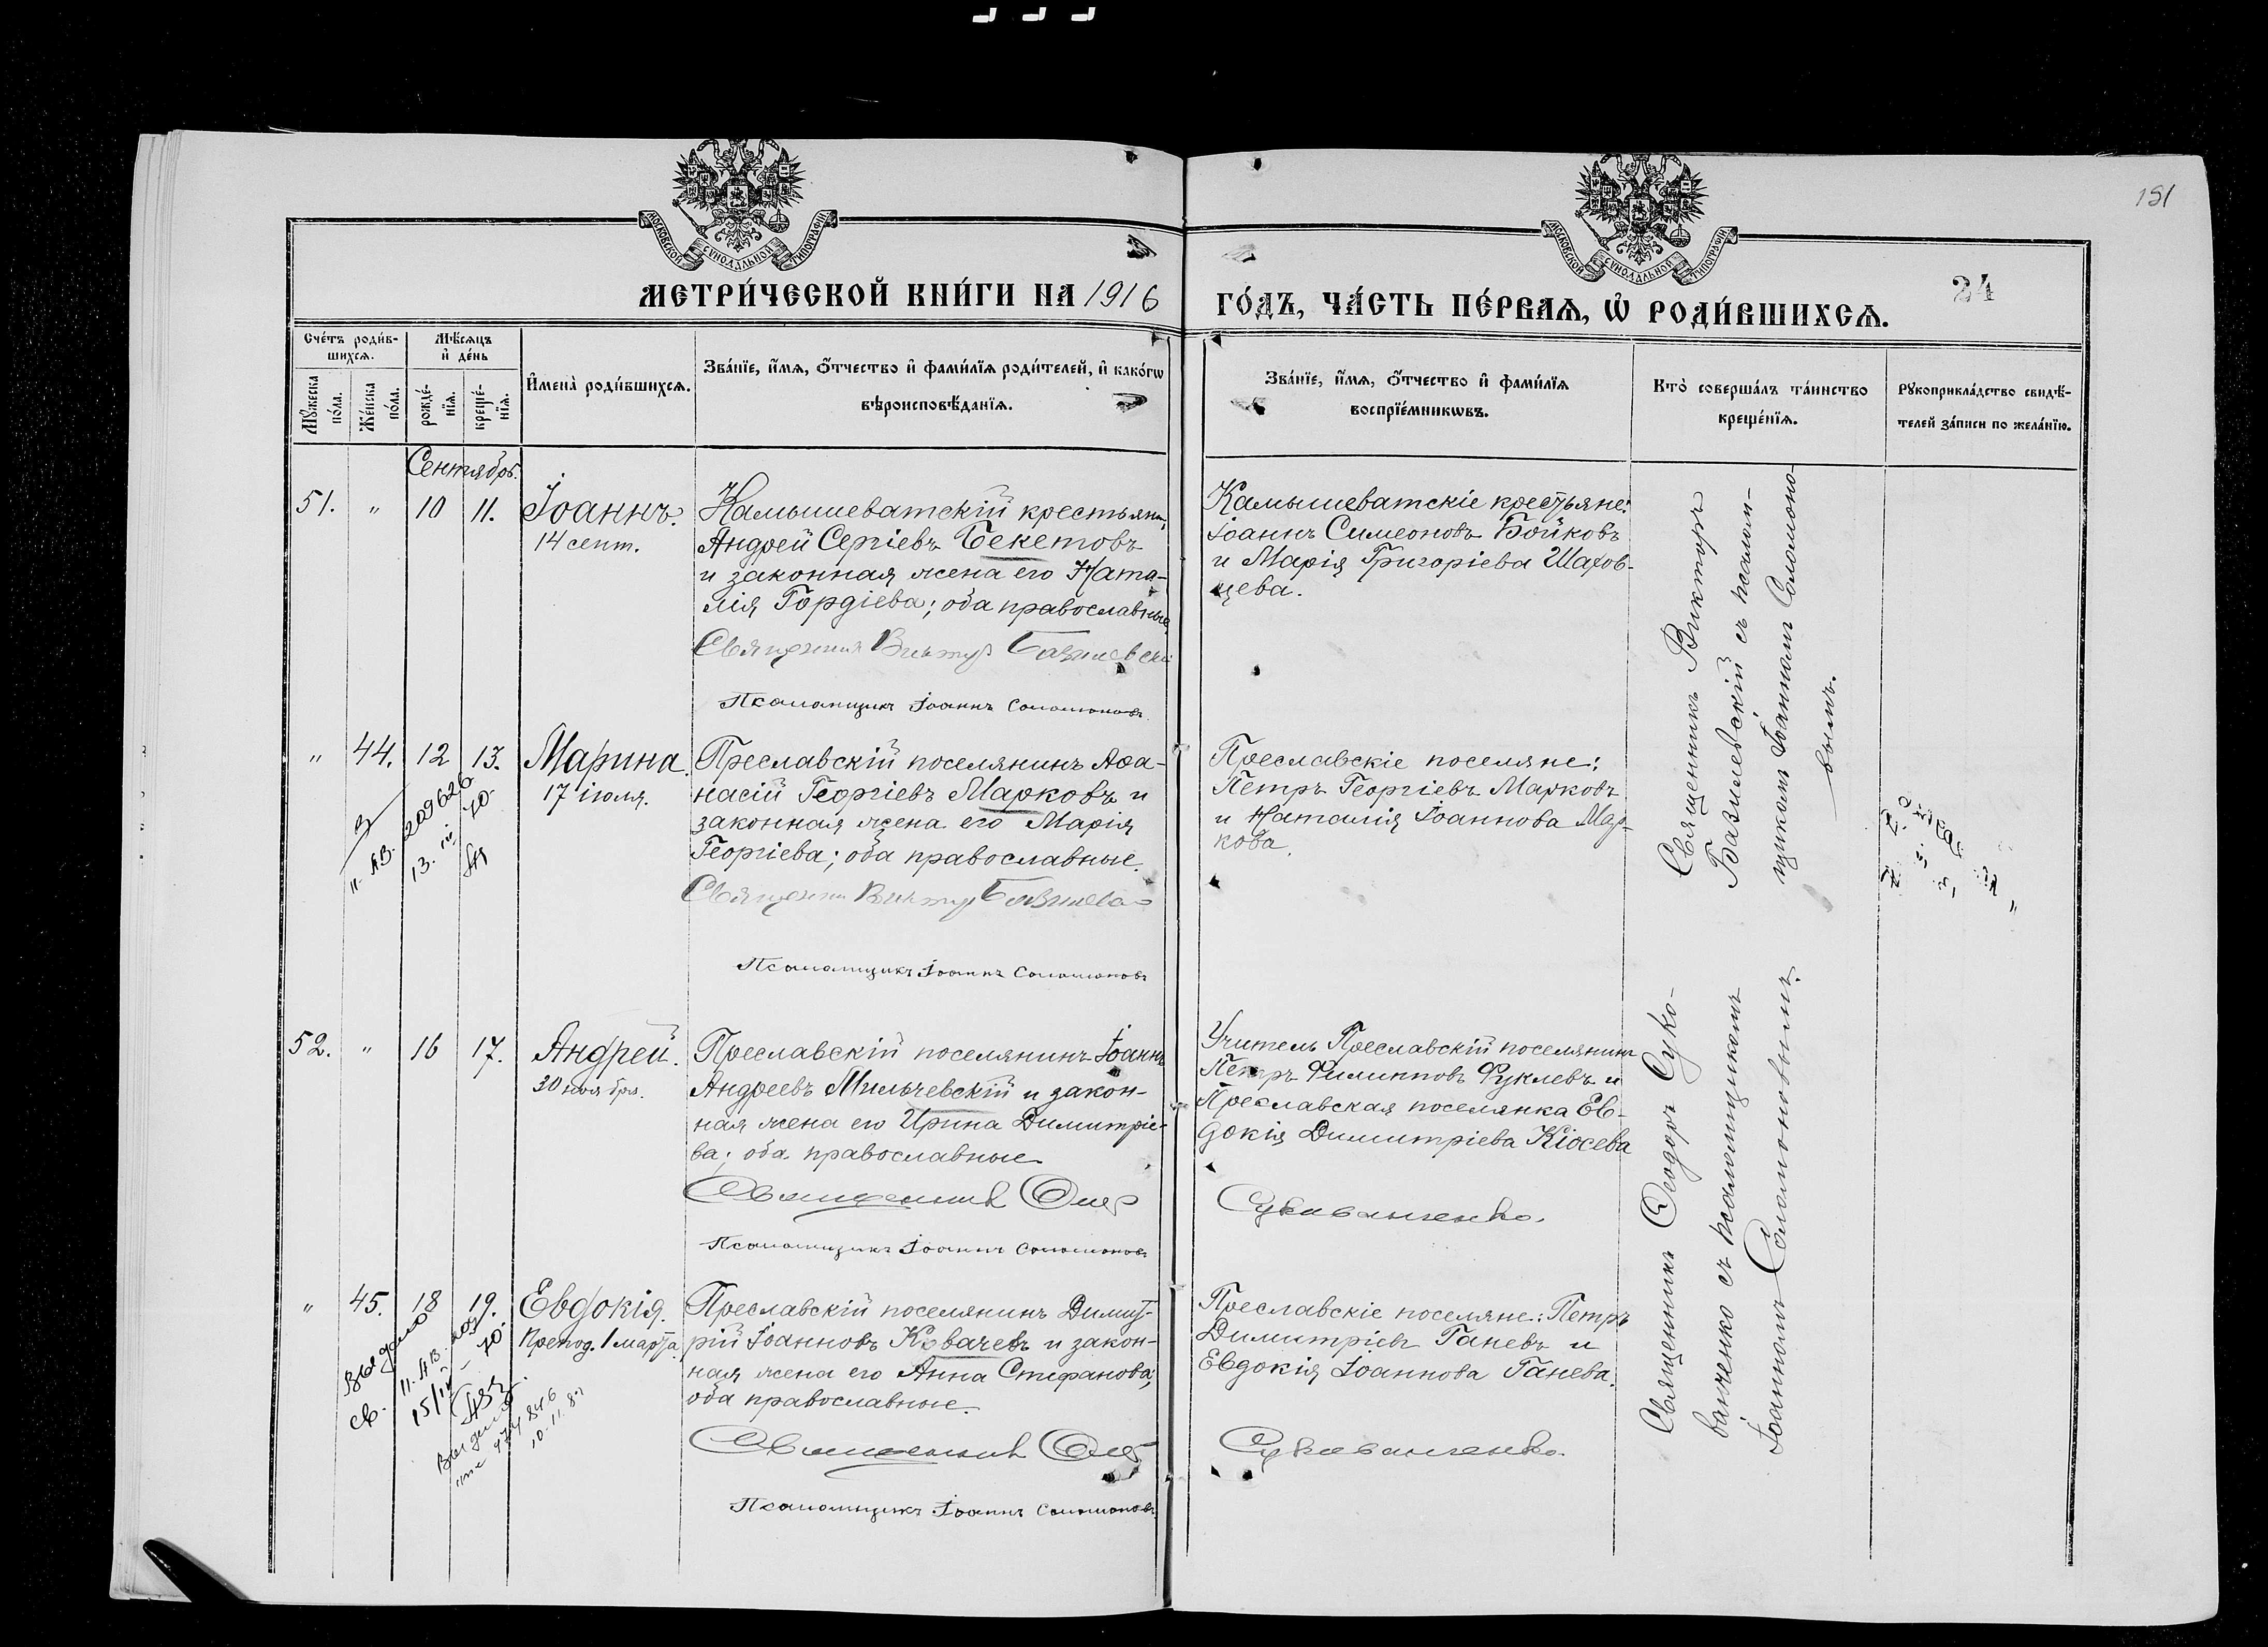 191
24
МОСКОВСКОЙ СѴНОДАЛЬНОЙ ТИПОГРАФІИ
МОСКОВСКОЙ СѴНОДАЛЬНОЙ ТИПОГРАФІИ
МЕТРИ́ЧЕСКОЙ КНИ́ГИ НА 1916
ГО́ДЪ, ЧА́СТЬ ПЕ́РВАѦ, Ѡ҆ РОДИ́ВШИХСѦ.
Сче́тъ роди́в-
шихсѧ.
Мꙋ́жеска по́ла.
Же́нска по́ла.
Мѣ́сѧцъ
и҆ де́нь
рожде́-
нїѧ.
креще́-
нїѧ.
И҆мена̀ роди́вшихсѧ.
Зва́нїе, и҆́мѧ, ѻ҆́тчество и҆ фами́лїѧ роди́телей, и҆ како́гѡ
вѣроисповѣ́данїѧ.
Зва́нїе, и҆́мѧ, ѻ҆́тчество и҆ фами́лїѧ
воспрїе́мникѡвъ.
Кто̀ соверша́лъ та́инство
креще́нїѧ.
Рꙋкоприкла́дство свидѣ́-
телей за́писи по жела́нїю.
Сентябрь.
51. " 10 11. Іоаннъ.
14 сент.
Камышеватскій крестьянин,
Андрей Сергіевъ Бекетовъ
и законная жена его Ната-
лія Гордіева; оба православные
Священник Виктор Базилевскій
Псаломщикъ Іоаннъ Соломоновъ.
Камышеватскіе крестьяне:
Іоаннъ Симеоновъ Бойковъ
и Марія Григоріева Шахов-
цева.
Священникъ Викторъ
Базилевскій съ псалом-
щикомъ Іоанномъ Соломоно-
вымъ.
" 44. 12 13. Марина.
17 іюля.
13.
Преславскій поселянинъ Аѳа-
насій Георгіевъ Марковъ и
законная жена его Марія
Георгіева; оба православные.
Священник Виктор
Псаломщикъ Іоаннъ Соломоновъ
Преславскіе поселяне:
Петръ Георгіевъ Марковъ
и Наталія Іоаннова Мар-
кова.
52. " 16 17. Андрей.
30 ноября.
Преславскій поселянинъ Іоаннъ
Андреевъ Мильчевскій и закон-
ная жена его Ирина Димитріе-
ва; оба православные
Священник Ѳеод
Псаломщикъ Іоаннъ Соломоновъ
Учитель Преславскій поселянинъ
Петръ Филипповъ Фуклевъ и
Преславская поселянка Ев-
докія Димитріева Кіосева
Сукованченко.
Священникъ Ѳеодоръ Суко-
ванченко съ псаломщикомъ
Іоанномъ Соломоновымъ.
" 45. 18 19. Евдокія.
Препод. 1 марта.
Выдано
св.
Преславскій поселянинъ Димит-
рій Іоанновъ Ковачевъ и закон-
ная жена его Анна Стефанова;
оба православные.
Священник Ѳеод
Псаломщикъ Іоаннъ Соломоновъ
Преславскіе поселяне: Петръ
Димитріевъ Ганевъ и
Евдокія Іоаннова Ганева.
Сукованченко.